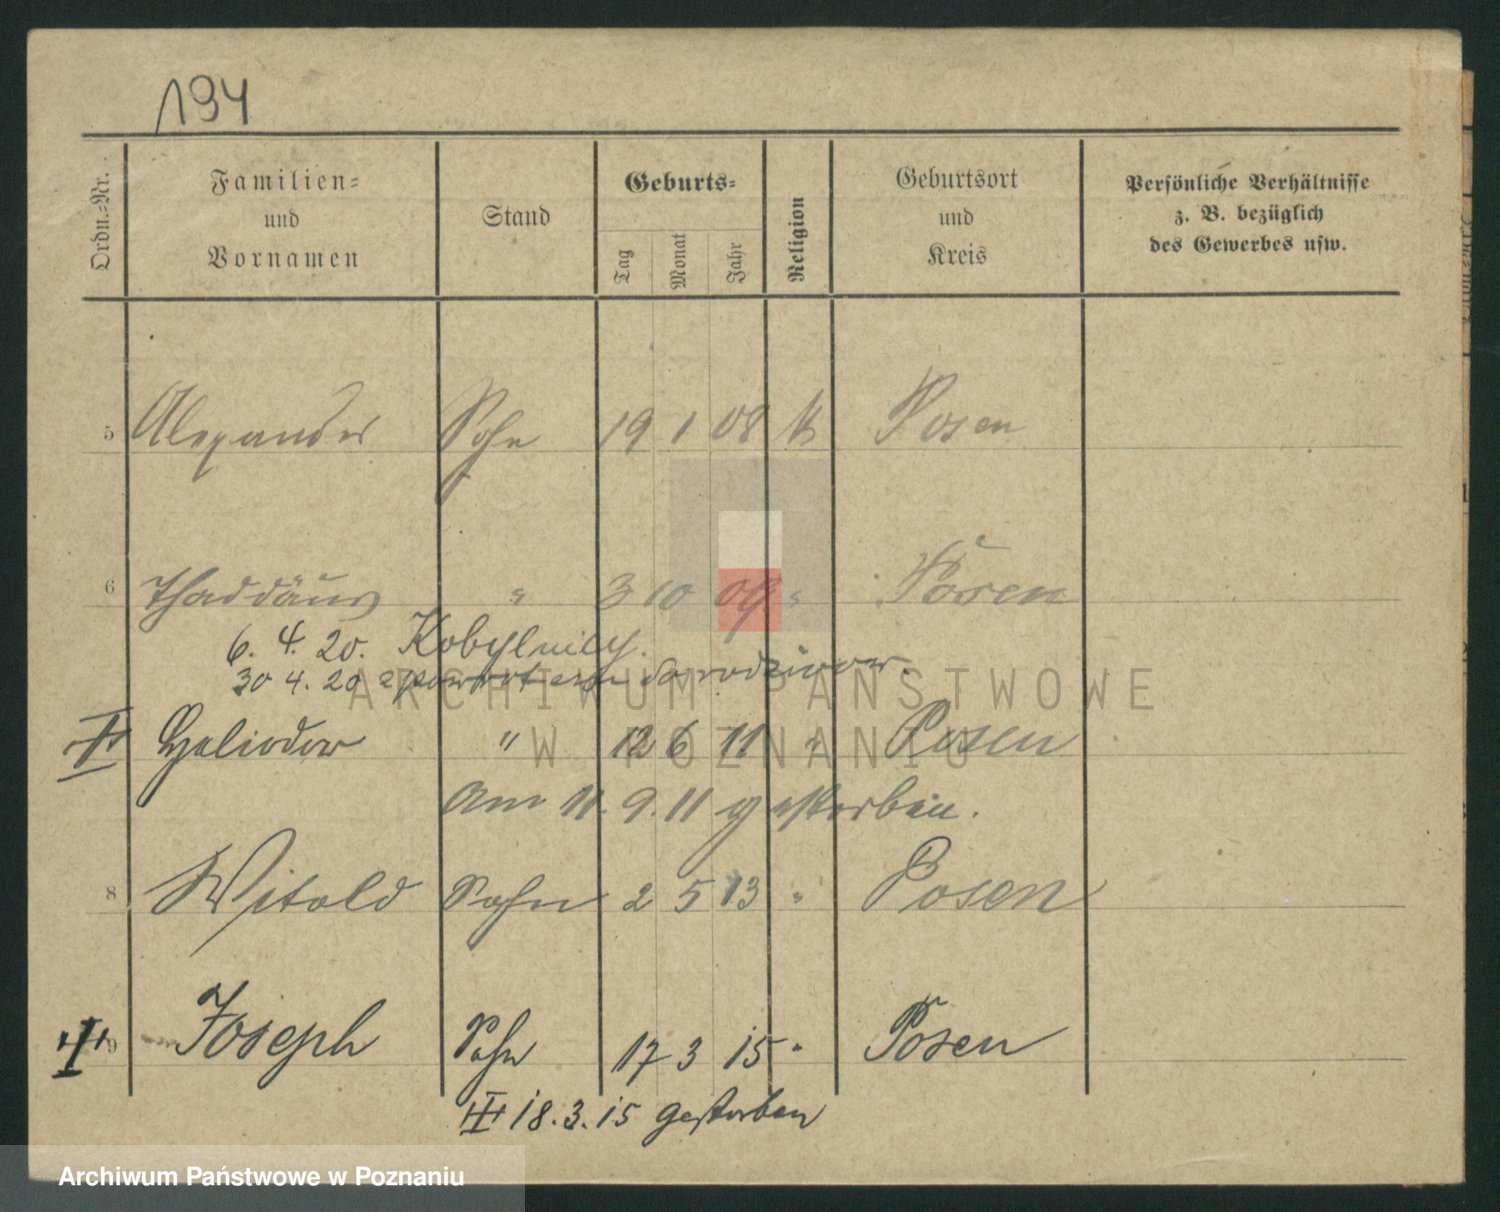 194
Ordn.-Nr.
Familien-
und
Vornamen
Stand
Geburts-
Tag
Monat
Jahr
Religion
Geburtsort
und
Kreis
Persönliche Verhältnisse
z. B. bezüglich
des Gewerbes usw.
5 Alexander Sohn 19 1 08 k Posen
6 Thaddäus " 3 10 09 " Posen
6. 4. 20. Kobylnicy.
30 4. 20
Heliodor " 12 6 11 " Posen
Am 11. 9. 11 gestorben.
8 Witold Sohn 2 5 13 " Posen
9 Joseph Sohn 17 3 15 " Posen
18. 3. 15 gestorben
ARCHIWUM PAŃSTWOWE
W POZNANIU
Archiwum Państwowe w Poznaniu